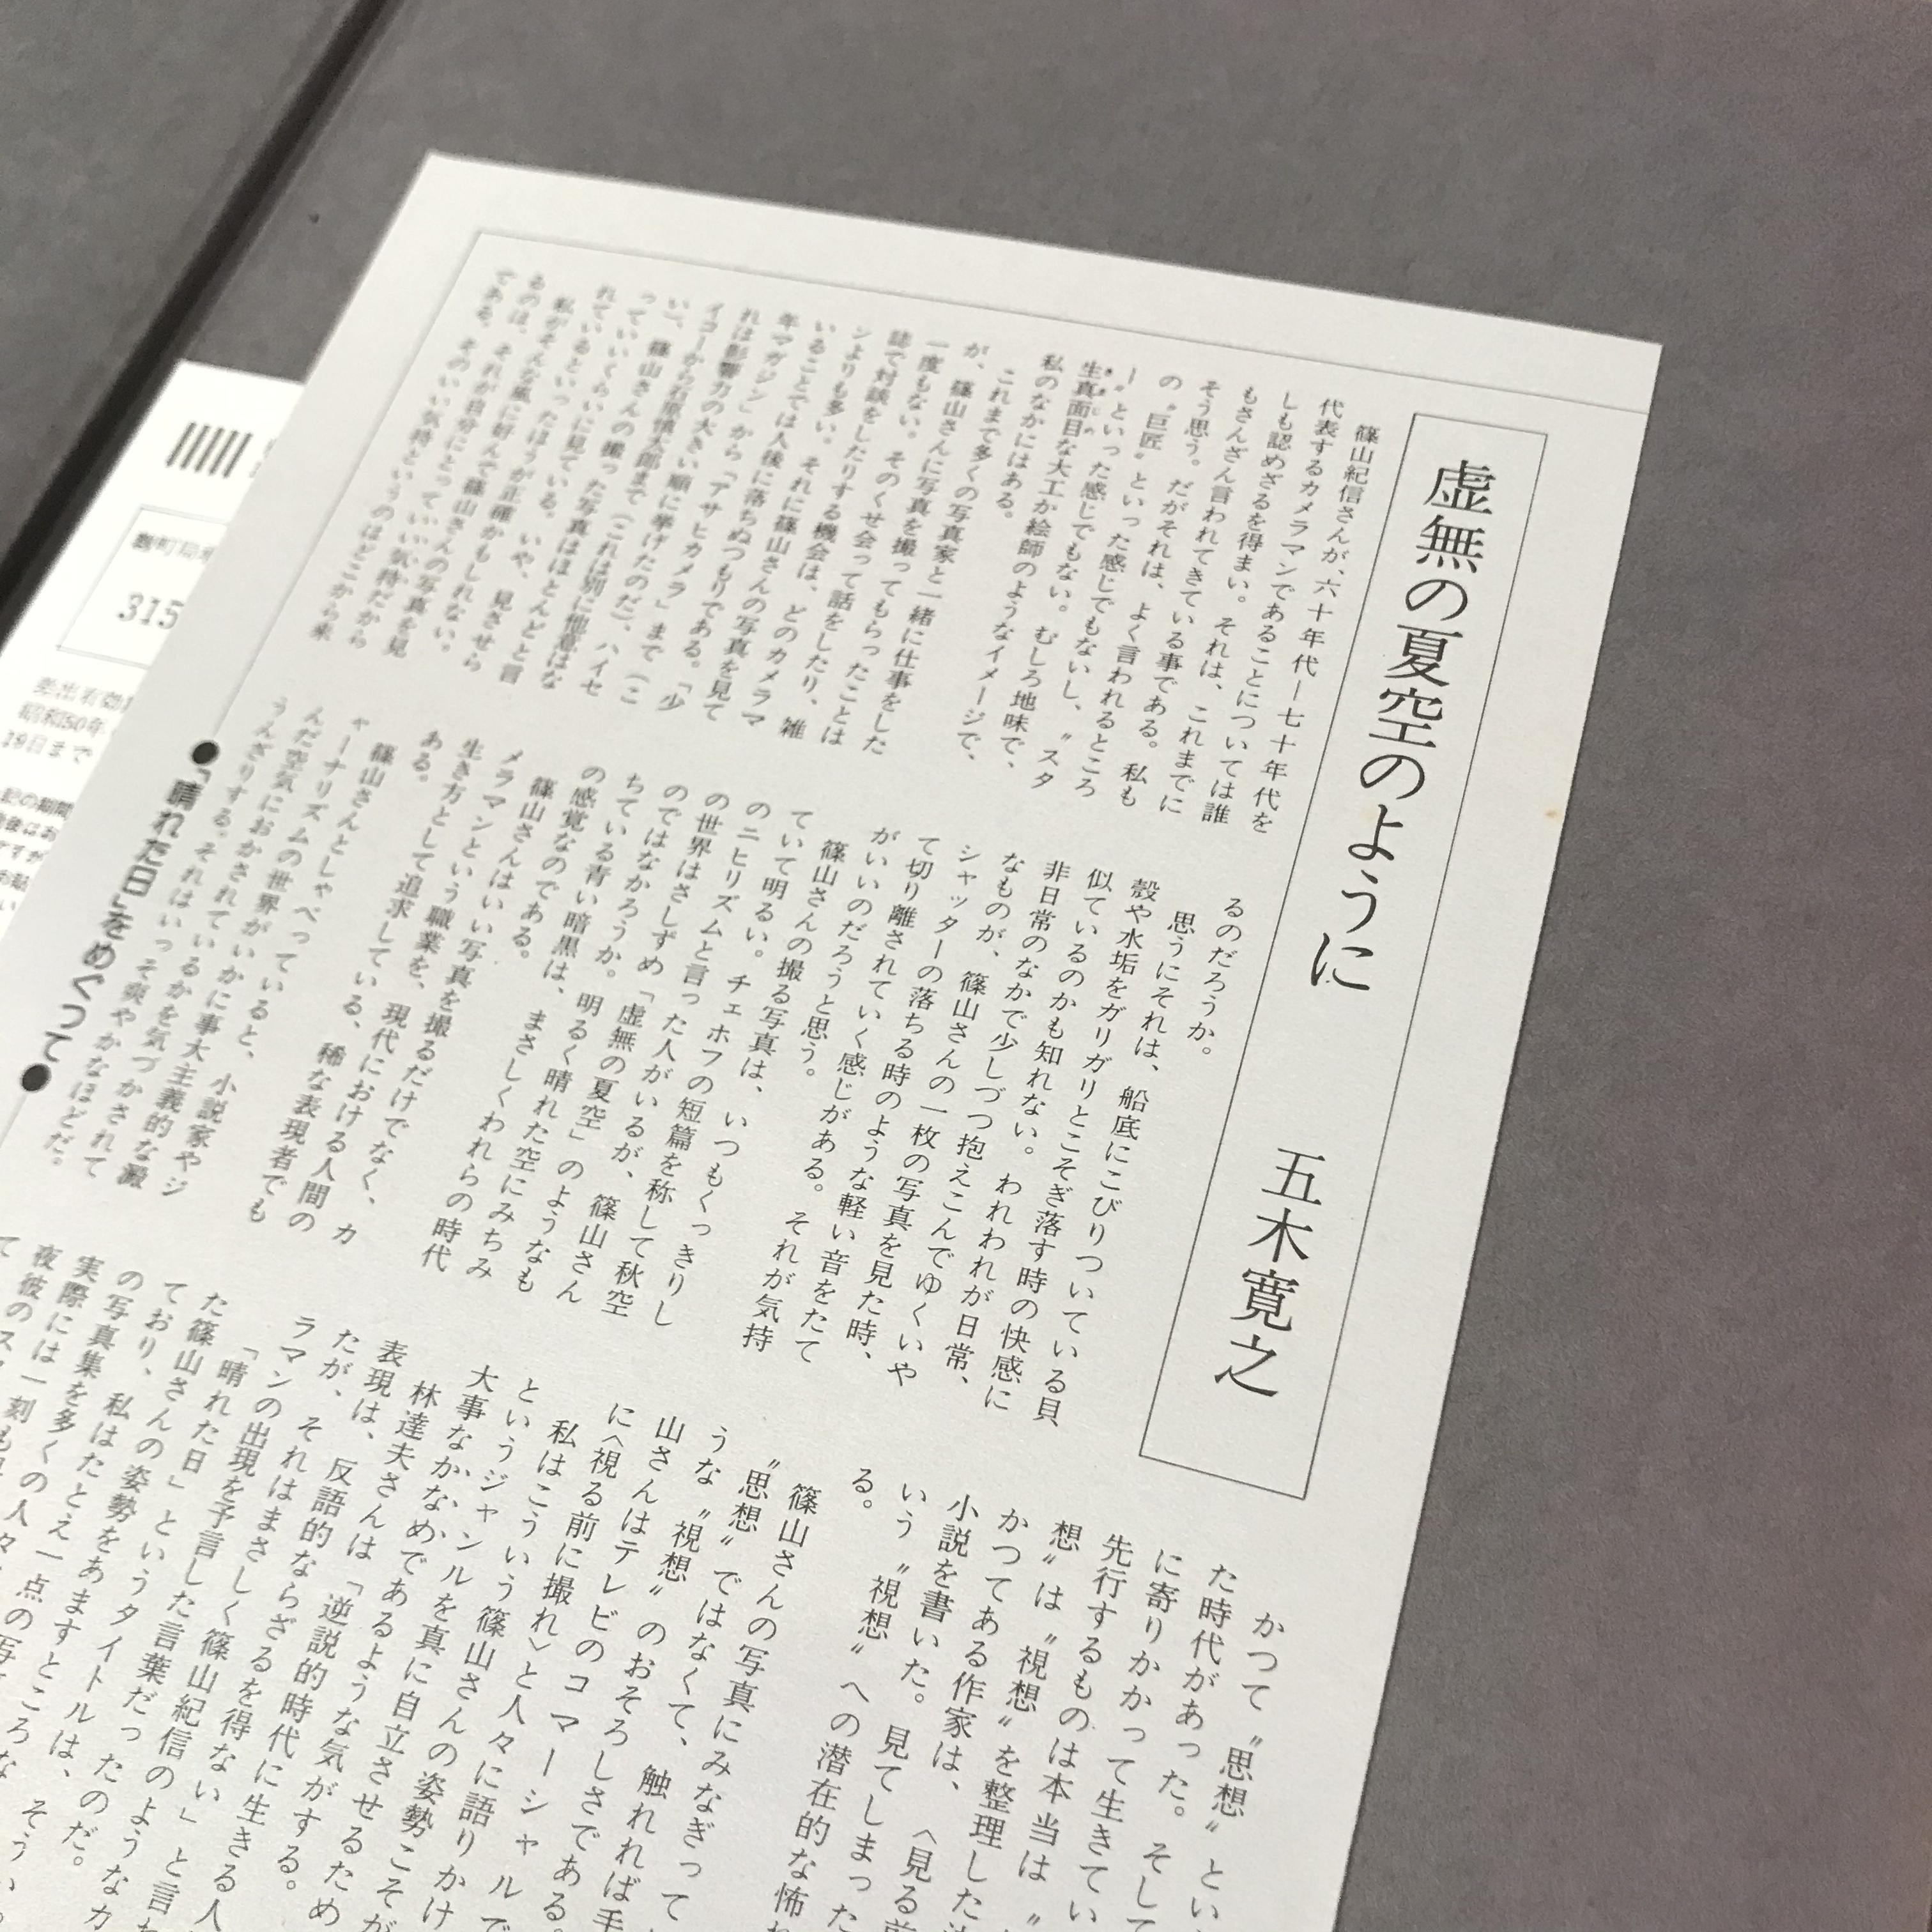 虚無の夏空のように
五木寛之
篠山紀信さんが、六十年代―七十年代を
代表するカメラマンであることについては誰
しも認めざるを得まい。それは、これまでに
もさんざん言われてきている事である。私も
そう思う。だがそれは、よく言われるところ
の〝巨匠〟といった感じでもないし、〝スタ
ー〟といった感じでもない。むしろ地味で、
生真面目な大工か絵師のようなイメージで、
私のなかにはある。
これまで多くの写真家と一緒に仕事をした
が、篠山さんに写真を撮ってもらったことは
一度もない。そのくせ会って話をしたり、雑
誌で対談をしたりする機会は、どのカメラマ
ンよりも多い。それに篠山さんの写真を見て
いることでは人後に落ちぬつもりである。「少
年マガジン」から「アサヒカメラ」まで（こ
れは影響力の大きい順に挙げたのだ）、ハイセ
イコーから石原慎太郎まで（これは別に他意はな
い）、篠山さんの撮った写真はほとんどと言
っていいくらいに見ている。いや、見させら
れているといったほうが正確かもしれない。
私がそんな風に好んで篠山さんの写真を見
るのは、それが自分にとっていい気持だから
である。そのいい気持というのはどこから来
るのだろうか。
思うにそれは、船底にこびりついている貝
殻や水垢をガリガリとこそぎ落す時の快感に
似ているのかも知れない。われわれが日常、
非日常のなかで少しづつ抱えこんでゆくいや
なものが、篠山さんの一枚の写真を見た時、
シャッターの落ちる時のような軽い音をたて
て切り離されていく感じがある。それが気持
がいいのだろうと思う。
篠山さんの撮る写真は、いつもくっきりし
ていて明るい。チェホフの短篇を称して秋空
のニヒリズムと言った人がいるが、篠山さん
の世界はさしずめ「虚無の夏空」のようなも
のではなかろうか。明るく晴れた空にみちみ
ちている青い暗黒は、まさしくわれらの時代
の感覚なのである。
篠山さんはいい写真を撮るだけでなく、カ
メラマンという職業を、現代における人間の
生き方として追求している、稀な表現者でも
ある。
篠山さんとしゃべっていると、小説家やジ
ャーナリズムの世界がいかに事大主義的な澱
んだ空気におかされているかを気づかされて
うんざりする。それはいっそ爽やかなほどだ。
かつて〝思想〟とい
た時代があった。そして
に寄りかかって生きてい
先行するものは本当は〝
想〟は〝視想〟を整理した
かつてある作家は、〈見る前
小説を書いた。見てしまった
いう〝視想〟への潜在的な怖
る。
篠山さんの写真にみなぎって
〝思想〟ではなくて、触れれば手
うな〝視想〟のおそろしさである。
山さんはテレビのコマーシャルで
に〈視る前に撮れ〉と人々に語りかけ
私はこういう篠山さんの姿勢こそが
というジャンルを真に自立させるため
大事なかなめであるような気がする。
林達夫さんは「逆説的時代に生きる人
表現は、反語的ならざるを得ない」と言
たが、それはまさしく篠山紀信のようなカ
ラマンの出現を予言した言葉だったのだ。
「晴れた日」というタイトルは、
た篠山さんの姿勢をあますところな
ており、私はたとえ一点の写
の写真集を多くの人々
実際には一刻も
夜彼のス
て
●「晴れた日」をめぐって●
麴町局
315
差出有効
昭和50年
19日まで